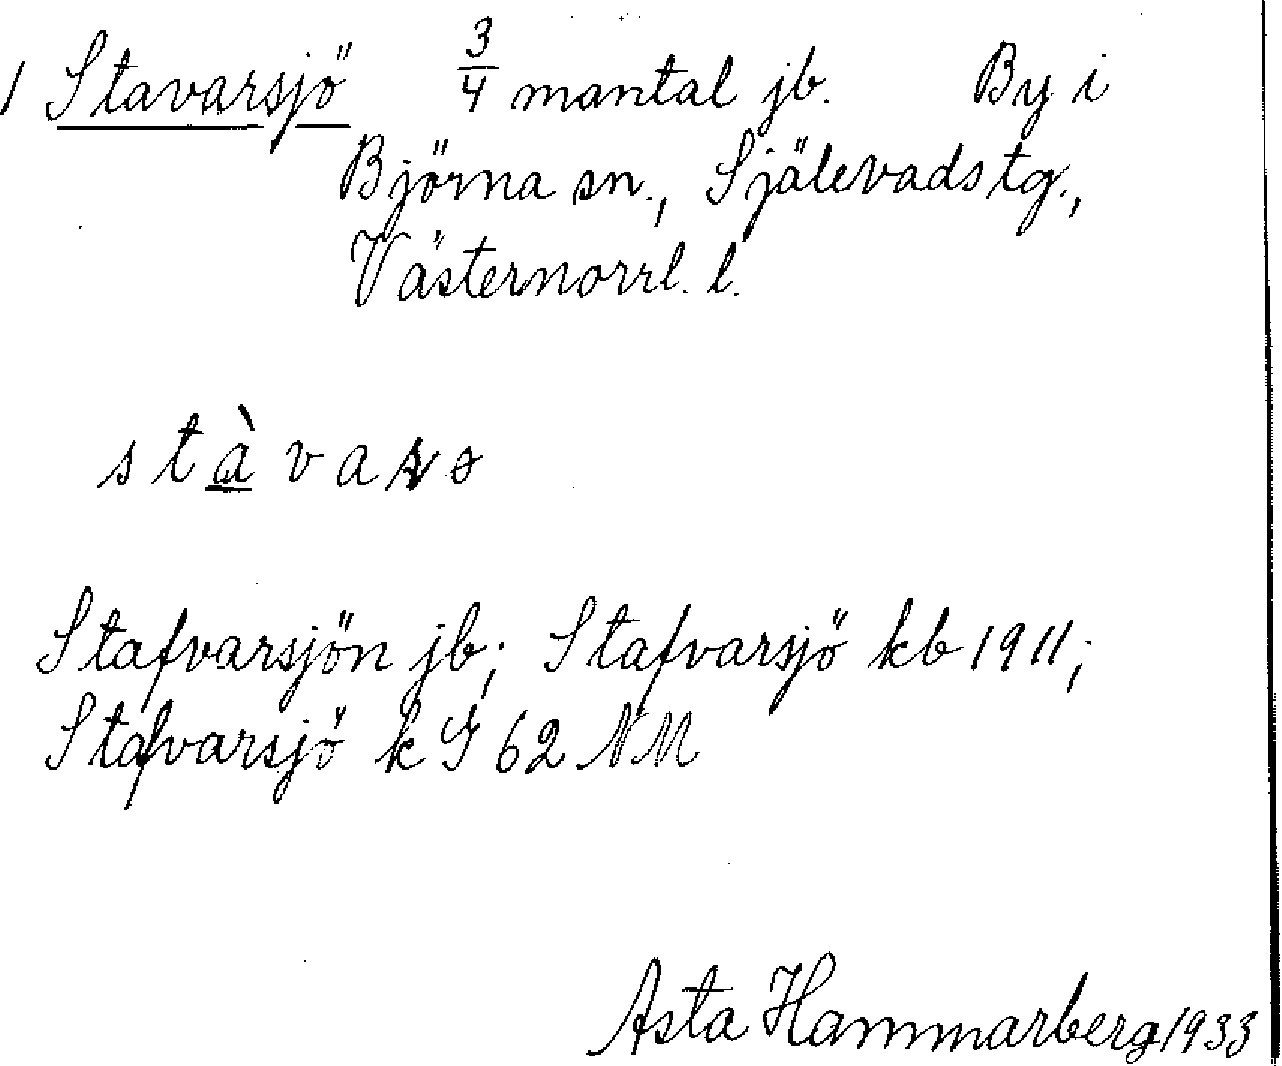 1 Stavarsjö 3/4 mantal jb. By i
Björna sn., Själevads tg.,
Västernorrl. l.
Stafvarsjön jb; Stafvarsjö kb 1911;
Stafvarsjö k G 62 NM
Asta Hammarberg 1933